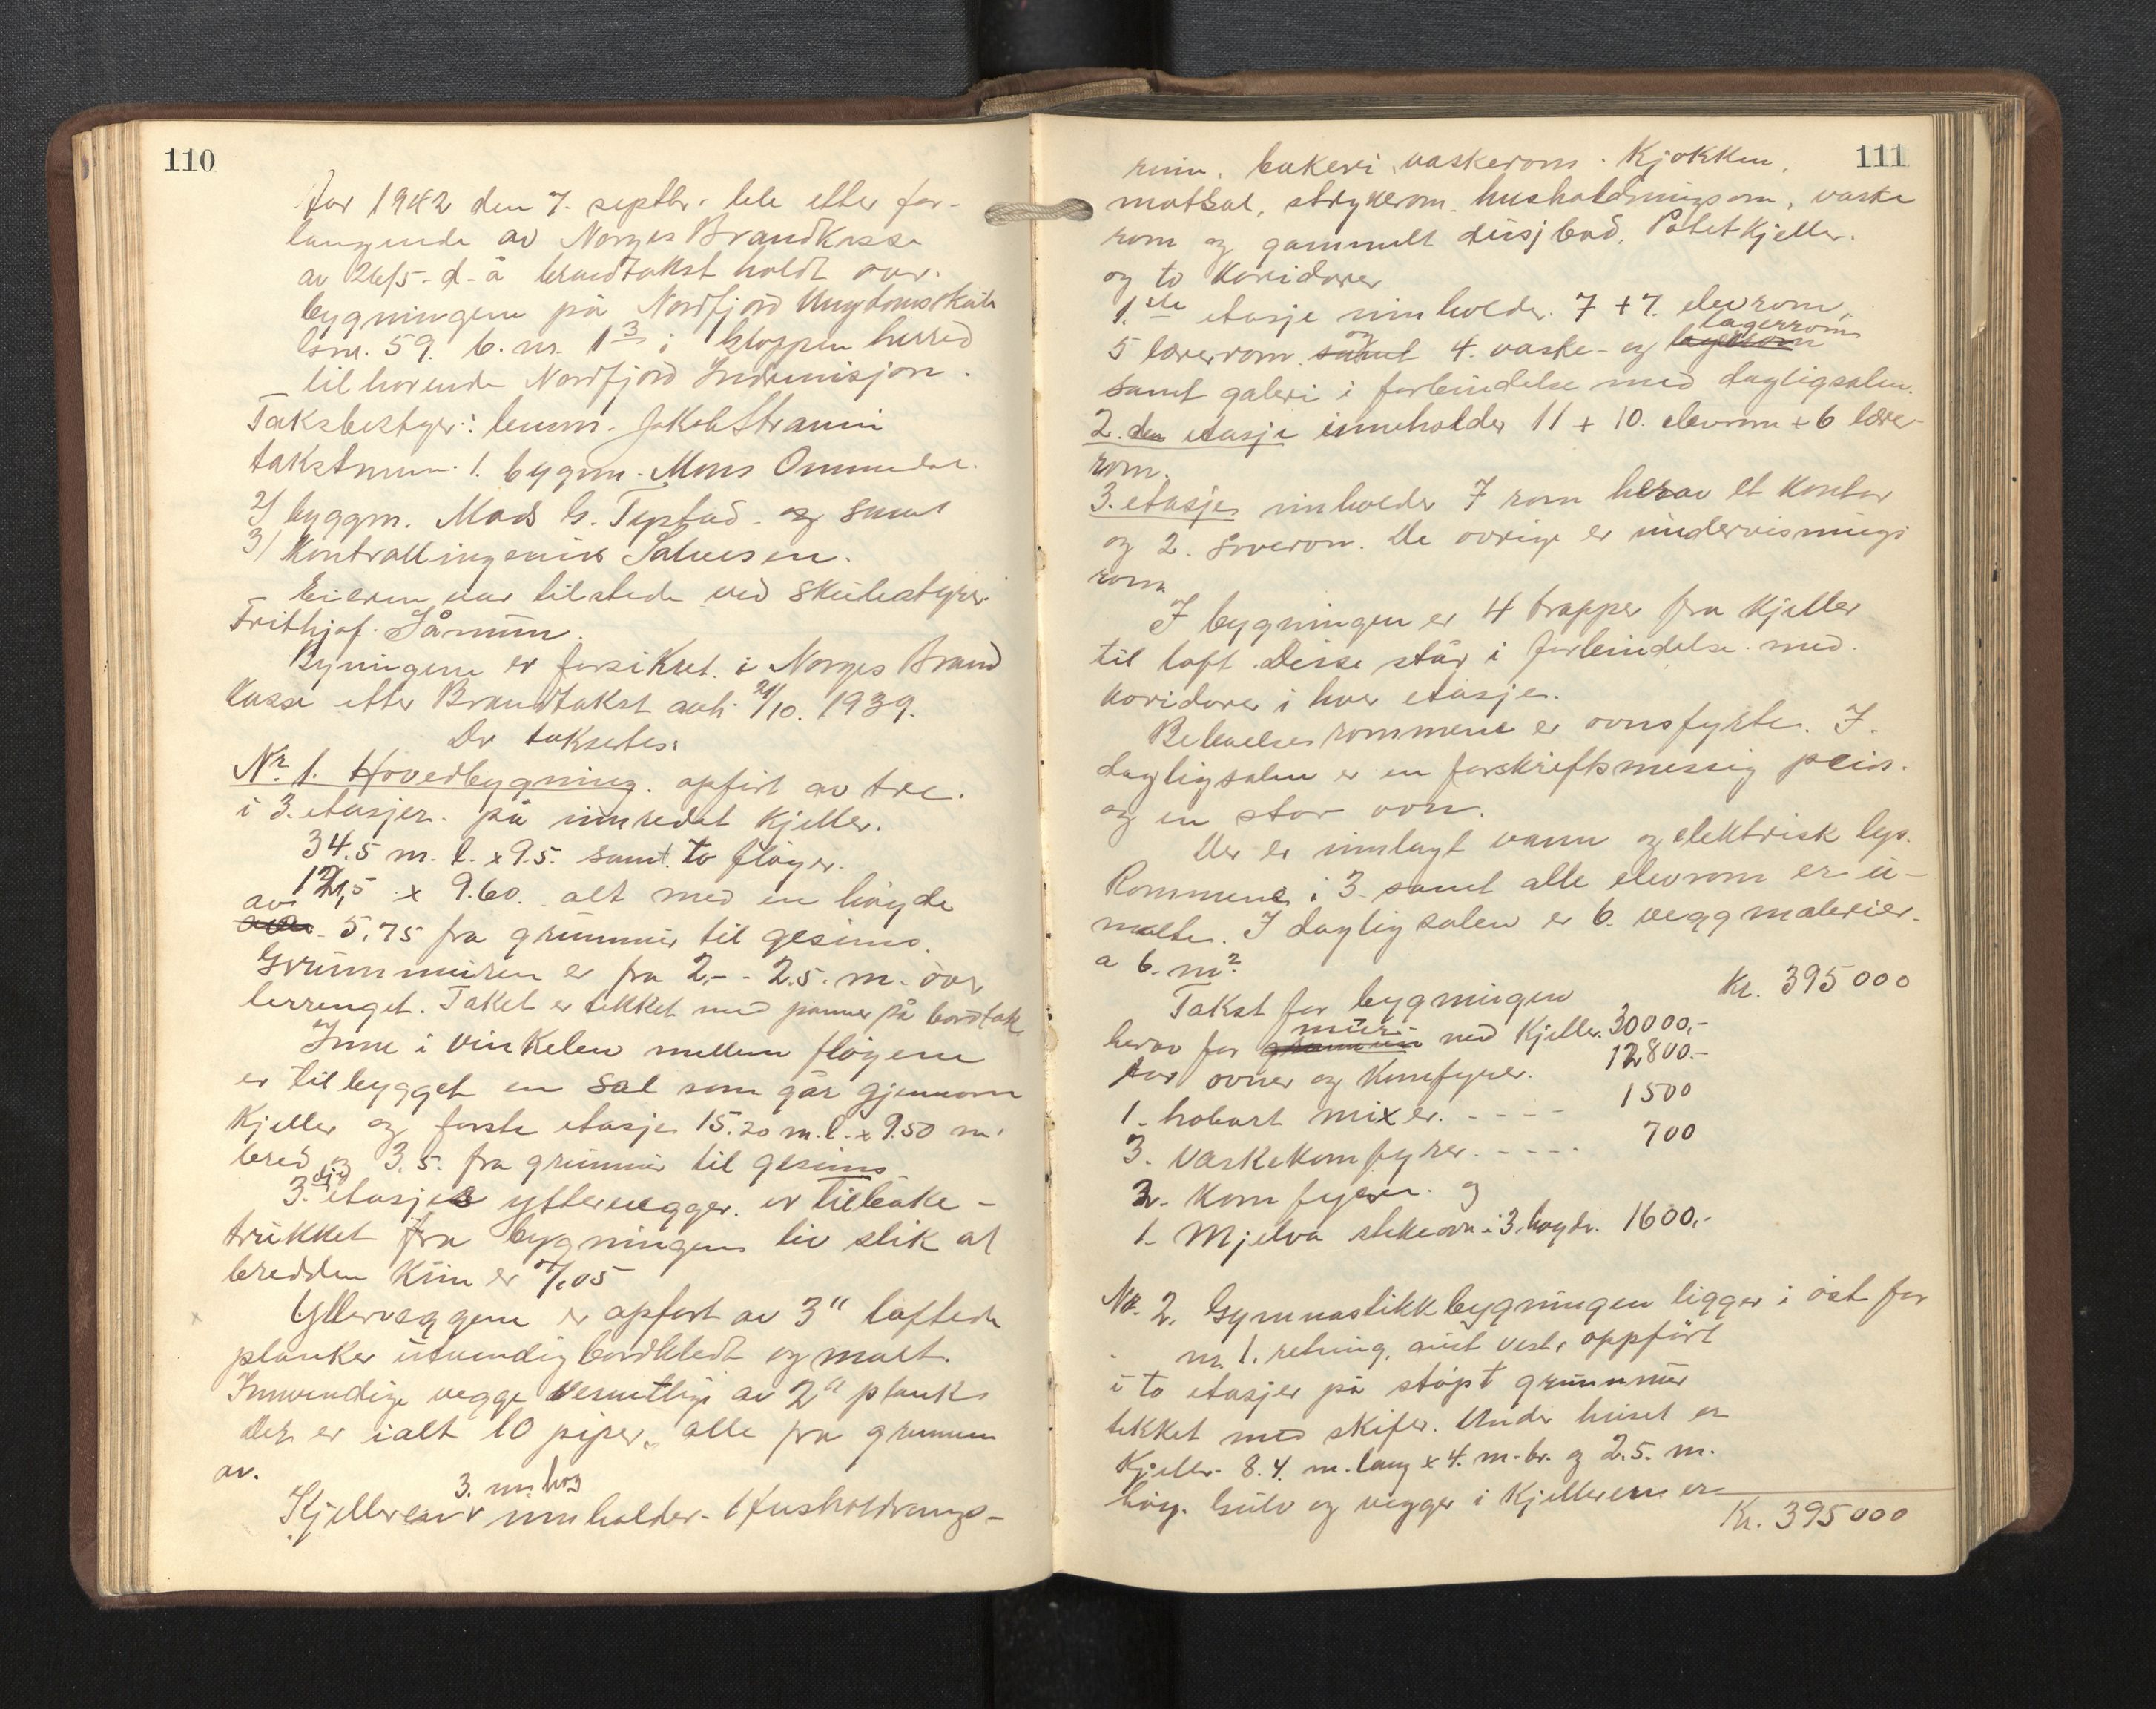 110
År 1942 den 7. septbr. ble etter for-
langende av Norges Brandkasse
av 26/5 - d - å brandtakst holdt over
bygningene på Nordfjord Ungdomsskule
Gnr. 59. b. nr. 1 3 i Gloppen herred
tilhørende Nordfjord Indremisjon.
Taksbestyr: lensm. Jakob
takstmenn 1. bygm. Mons Ommedal.
2/ byggm. Mads G. Tystad - og samt
3/ Kontrollingeniør Salvesen.
Eieren var tilstede ved skulestyrer
Frithjof.
Bygningene er forsikret i Norges Brand
kasse etter Brandtakst avh. 21/10. 1939.
Der takseres:
Nr. 1. Hovedbygning. opført av tre.
i 3. etasjer. på innredet kjeller.
34.5 m. l. x 9.5. samt. to fløyer.
av 12,5 x 9.60. alt med en høyde
5.75 fra grunnmur til gesims.
Grunnmuren er fra 2,- - 2.5. m. over
terrenget. Taket er tekket med panner på bordtak
Inne i vinkelen mellem fløyene
er tilbygget en sal som går gjennom
Kjeller og første etasje 15.20 m. l. x 9.50 m.
bred og 3.5. fra grunnmur til gesims.
3. dje etasjes yttervegger. er tilbake-
trukket fra bygningens liv slik at
bredden kun er 7,05
Ytterveggene er opført av 3" laftede
planker utvendig bordkledt og malt.
Innvendige vegge vesentlig av 2" planke
Der er ialt 10 piper, alle fra grunnen
av.
3. m. høg
Kjelleren inneholder - Husholdnings-
111
rum, bakeri, vaskerom. Kjøkken,
matsal, strykerom, husholdningsrom, vaske
rom og gammelt dusjbad. Potetkjeller.
og to koridorer
1. ste etasje innholder. 7 + 7. elevrom,
5 lærerrom samt og 4. vaske- og lagerrom lagerrom
samt galeri i forbindelse med dagligsalen.
2. den etasje inneholder 11 + 10. elevrom + 6 lærer-
rom.
3. etasje innholder 7 rom herav et kontor
og 2. soverom. De øvrige er undervisnings
rom
I bygningen er 4 trapper fra kjeller
til loft. Disse står i forbindelse med
koridorer i hver etasje.
Beboelsesrommene er ovnsfyrte. I
dagligsalen er en forskriftsmessig peis.
og en stor ovn.
Der er innlagt vann og elektrisk lys.
Rommene i 3. samt alle elevrom er u-
malte. I dagligsalen er 6. veggmalerier
a 6. m²
Takst for bygningen Kr. 395 000
herav for grunnmur mur- med Kjeller. 30000,-
for ovner og komfyrer. 12800.-
1 - hobart mixer. - - - - 1500
3. vaskekomfyrer. - - - - 700
2. komfyrer. og
1 - Mjelva stekeovn i 3. høgder. 1600,-
Nr. 2. Gymnastikkbygningen ligger i øst for
nr. 1. retning, aust vest, oppført
i to etasjer på støpt grunnmur
tekket med skifer. Under huset er
Kjeller. 8.4. m. lang x 4. m. br. og 2.5. m.
høg. Gulv og vegger i kjelleren er
Kr. 395 000